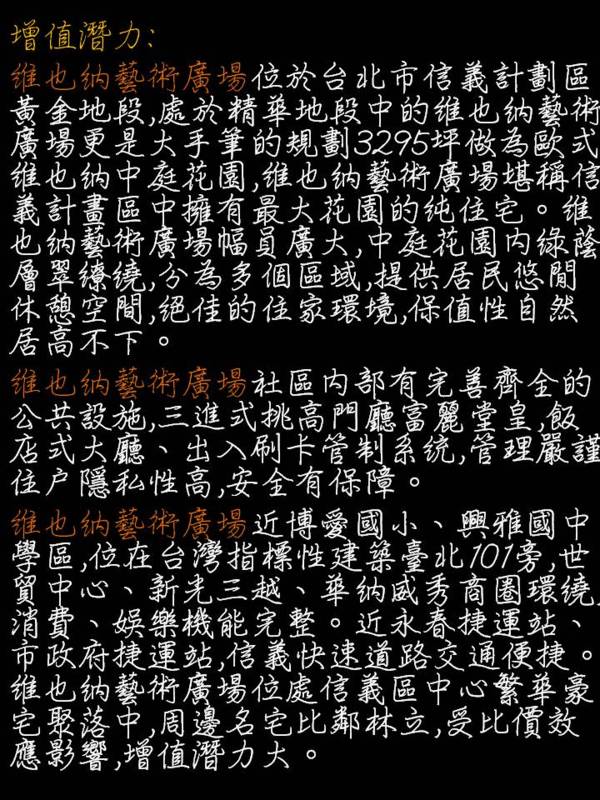 增值潛力:
維也納藝術廣場位於台北市信義計劃區
黃金地段,處於精華地段中的維也納藝術
廣場更是大手筆的規劃3295坪做為歐式
維也納中庭花園,維也納藝術廣場堪稱信
義計畫區中擁有最大花園的純住宅。維
也納藝術廣場幅員廣大,中庭花園內綠蔭
層翠繚繞,分為多個區域,提供居民悠閒
休憩空間,絕佳的住家環境,保值性自然
居高不下。
維也納藝術廣場社區內部有完善齊全的
公共設施,三進式挑高門廳富麗堂皇,飯
店式大廳、出入刷卡管制系統,管理嚴謹
住戶隱私性高,安全有保障。
維也納藝術廣場近博愛國小、興雅國中
學區,位在台灣指標性建築臺北101旁,世
貿中心、新光三越、華納威秀商圈環繞,
消費、娛樂機能完整。近永春捷運站、
市政府捷運站,信義快速道路交通便捷。
維也納藝術廣場位處信義區中心繁華豪
宅聚落中,周邊名宅比鄰林立,受比價效
應影響,增值潛力大。